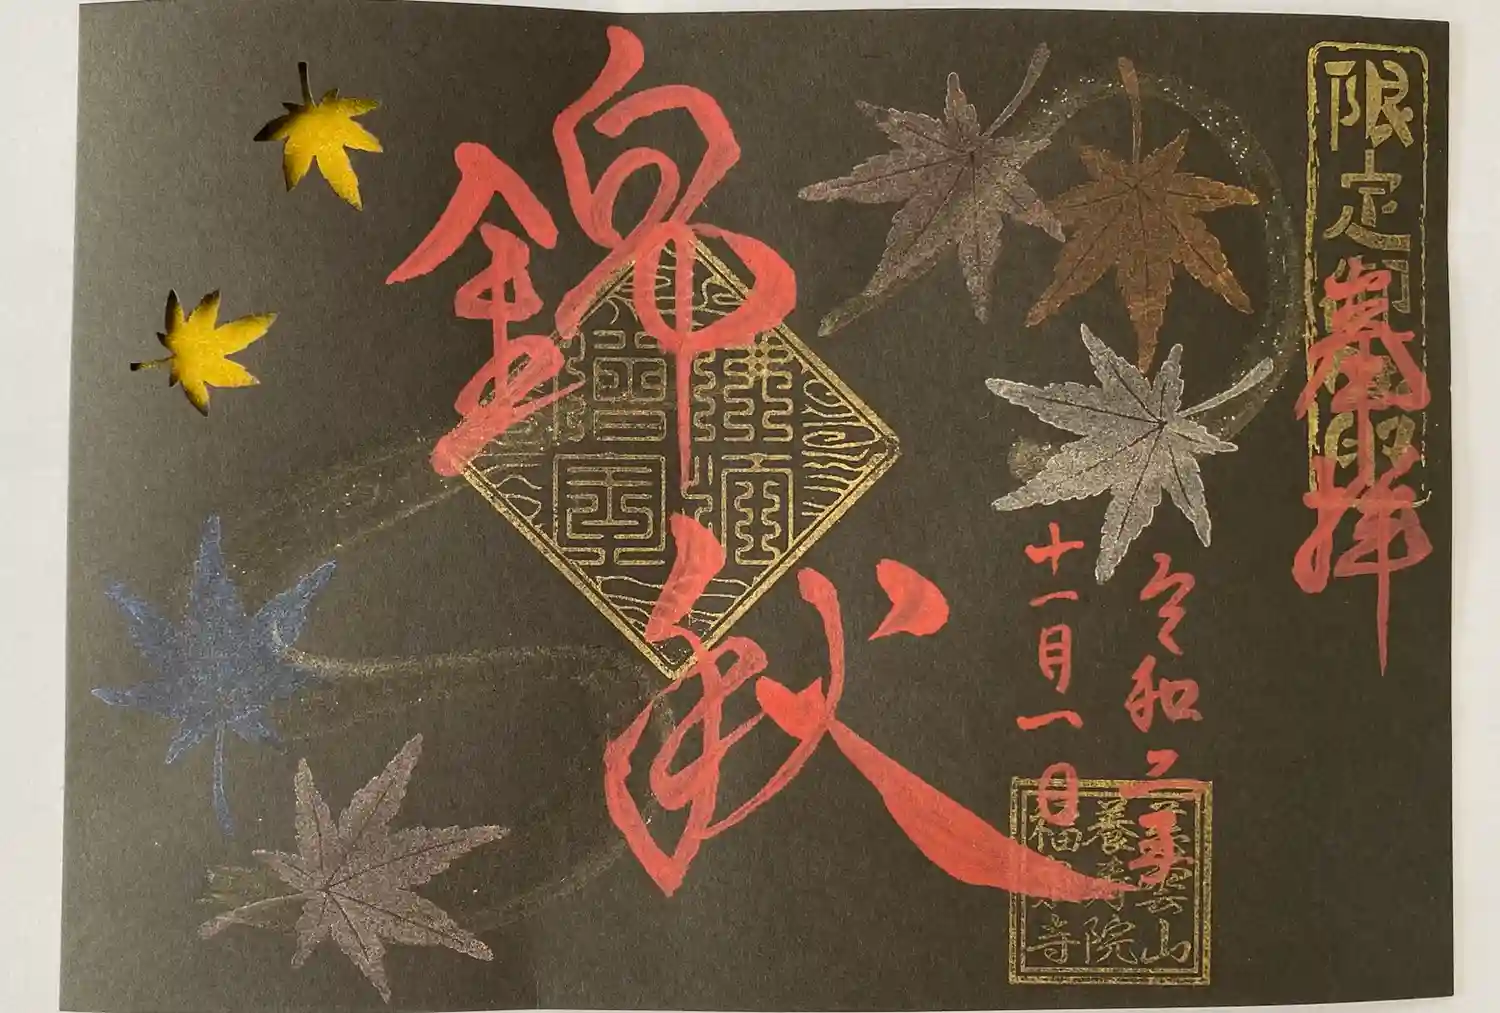 限定御朱印
奉拝
令和二年
十一月一日
錦秋
雲山
養寿院